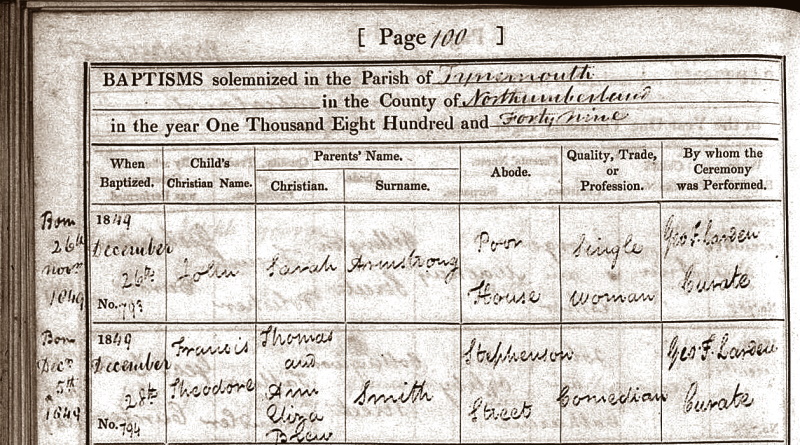 [ Page 100 ]
BAPTISMS solemnized in the Parish of Tynemouth
in the County of Northumberland
in the year One Thousand Eight Hundred and Forty nine
When Baptized.
Child's Christian Name.
Parents' Name.
Christian.
Surname.
Abode.
Quality, Trade, or Profession.
By whom the Ceremony was Performed.
Born
26th
Novr
1849
1849
December
26th
No. 793
John
Sarah
Armstrong
Poor
House
Single
Woman
Geo F. Larden
Curate
Born
Decr
5th
1849
1849
December
28th
No. 794
Francis
Theodore
Thomas
and
Ann
Eliza
Smith
Stephenson
Street
Comedian
Geo F. Larden
Curate